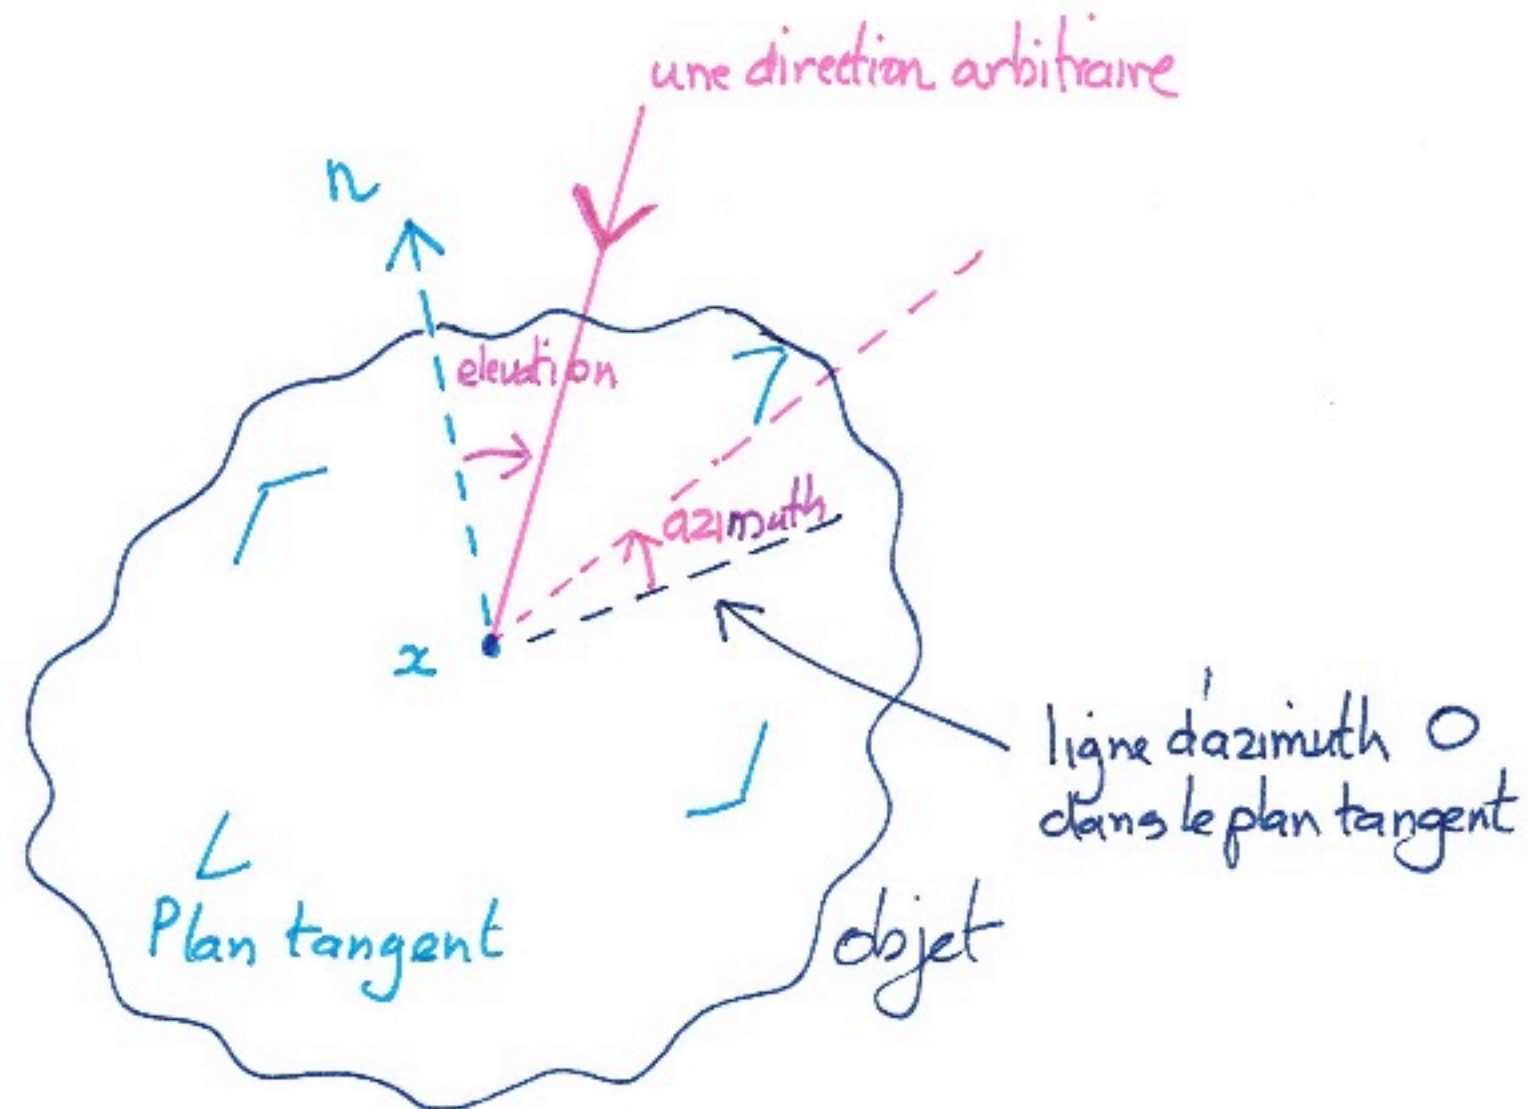 une direction arbitraire
n
elevation
azimuth
x
ligne d'azimuth 0
dans le plan tangent
Plan tangent
objet